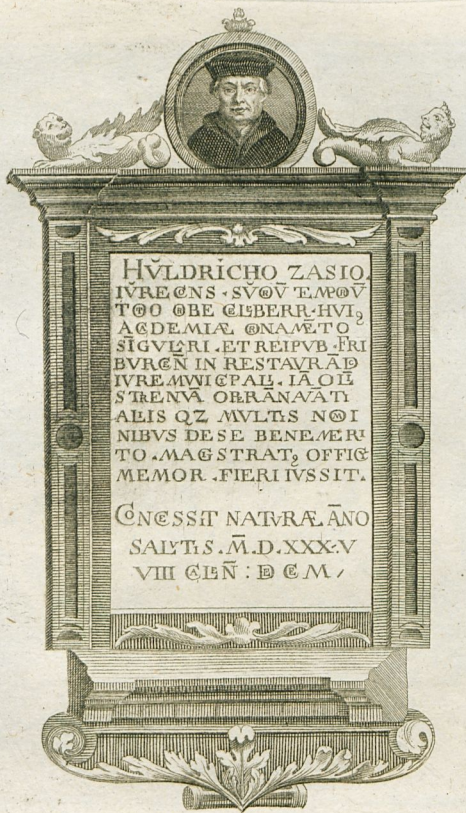 HVLDRICHO ZASIO.
IVRECONS · SVORV TEMPORV
TOTO ORBE CELEBERR · HVIꝰ
ACADEMIÆ ORNAMĒTO
SĪGVLARI · ET REIPUB · FRI
BVRGEN̄ IN RESTAVRĀD
IVRE MVNICIPALI · IĀ OLĪ
STRENVA
ALIIS QZ MVLTIS NOMI
NIBVS DE SE BENEMERI
TO · MAGISTRATꝰ OFFICII
MEMOR · FIERI IVSSIT.
CONCESSIT NATVRÆ ĀNO
SALVTIS · M̄. D. XXX · V
VIII CALEN̄ : DECEM